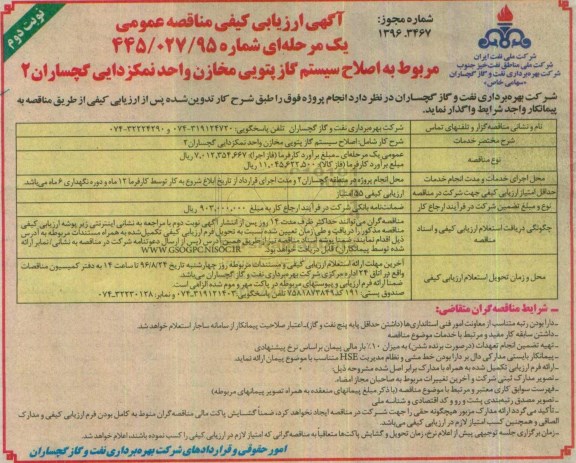 نوبت دوم
شماره مجوز:
۱۳۹۶.۳۴۶۷
آگهی ارزیابی کیفی مناقصه عمومی
یک مرحله‌ای شماره ۴۴۵/۰۲۷/۹۵
مربوط به اصلاح سیستم گاز پتویی مخازن واحد نمکزدایی گچساران ۲
شرکت ملی نفت ایران
شرکت ملی مناطق نفت‌خیز جنوب
شرکت بهره‌برداری نفت و گاز گچساران
«سهامی خاص»
شرکت بهره‌برداری نفت و گاز گچساران در نظر دارد انجام پروژه فوق را طبق شرح کار تدوین‌شده پس از ارزیابی کیفی از طریق مناقصه به
پیمانکار واجد شرایط واگذار نماید.
نام و نشانی مناقصه‌گزار و تلفنهای تماس
شرکت بهره‌برداری نفت و گاز گچساران تلفن پاسخگویی: ۳۱۹۱۲۴۷۲-۰۷۴ و ۳۲۲۲۴۲۹۰-۰۷۴
شرح مختصر خدمات
شرح کار شامل: اصلاح سیستم گاز پتویی مخازن واحد نمکزدایی گچساران ۲
نوع مناقصه
عمومی یک مرحله‌ای ـ مبلغ برآورد کارفرما (فاز اجرا): ۷,۰۱۲,۳۵۴,۶۶۷ ریال
مبلغ برآورد کارفرما (فاز کالا): ۱۱,۰۴۵,۶۲۲,۵۰۰ ریال
محل اجرای خدمات و مدت انجام خدمات
محل انجام پروژه در منطقه گچساران ۲ و مدت اجرای قرارداد از تاریخ ابلاغ شروع به کار توسط کارفرما ۱۲ ماه و دوره نگهداری ۶ ماه می‌باشد.
حداقل امتیاز ارزیابی کیفی جهت شرکت در مناقصه
ارزیابی کیفی ۵۵ امتیاز
نوع و مبلغ تضمین شرکت در فرآیند ارجاع کار
ضمانت‌نامه بانکی شرکت در فرآیند ارجاع کار به مبلغ ۹۰۳,۰۰۰,۰۰۰ ریال
چگونگی دریافت استعلام ارزیابی کیفی و اسناد مناقصه
مناقصه‌گران می‌توانند حداکثر ظرف مدت ۱۴ روز پس از انتشار آگهی نوبت دوم با مراجعه به نشانی اینترنتی زیر پوشه ارزیابی کیفی
www.GSOGPCNISOC.IR
محل و زمان تحویل استعلام ارزیابی کیفی
آخرین مهلت ارائه استعلام ارزیابی کیفی و مستندات مربوطه روز چهارشنبه تاریخ ۹۶/۸/۲۴ تا ساعت ۱۴ به دفتر کمیسیون مناقصات
واقع در اتاق ۲۴ اداره مرکزی شرکت بهره‌برداری نفت و گاز گچساران می‌باشد.
ضمناً ارائه فرم ارزیابی و پیوستهای مربوطه در پاکت مهر و موم شده الزامی است.
صندوق پستی: ۱۹۱ کد پستی ۷۵۸۱۸۷۳۸۴۹ تلفن پاسخگویی: ۳۱۹۲۱۴۰۳-۰۷۴ و نمابر: ۳۲۲۳۰۱۲۸-۰۷۴
ـ شرایط مناقصه‌گران متقاضی:
ـ دارا بودن رتبه متناسب از معاونت امور فنی استانداری‌ها (داشتن حداقل پایه پنج نفت و گاز)ـ اعتبار صلاحیت پیمانکار از سامانه ساجار استعلام خواهد شد.
ـ داشتن سابقه کار مفید و مرتبط با خدمات موضوع مناقصه
ـ تهیه تضمین انجام تعهدات (درصورت برنده شدن) به میزان ۱۰٪ بار مالی پیمان براساس نرخ پیشنهادی
ـ پیمانکار بایستی مدارکی دال بر دارا بودن خط مشی و نظام مدیریت HSE متناسب با موضوع پیمان ارائه نماید.
ـ ارائه فرم ارزیابی تکمیل شده به همراه با مدارک برابر اصل شده مشروحه ذیل:
ـ تصویر مدارک ثبتی شرکت و آخرین تغییرات مربوط به صاحبان مجاز امضاء.
ـ فهرست سوابق کاری معتبر و مرتبط با موضوع مناقصه (با ذکر مبلغ پیمانهای منعقده به همراه تصویر پیمانهای مربوطه)
ـ تصویر مصدق رتبه‌بندی پشت و رو و کد اقتصادی و شناسه ملی
ـ تأکید می‌گردد ارائه مدارک مزبور هیچگونه حقی را جهت شرکت در مناقصه ایجاد نخواهد کرد، ضمناً گشایش پاکت مالی مناقصه‌گران منوط به کامل بودن فرم ارزیابی کیفی و مدارک
الصاقی و همچنین کسب امتیاز لازم در ارزیابی کیفی می‌باشد.
ـ زمان برگزاری جلسه توجیهی پیش از اعلام نرخ، زمان تحویل و گشایش پاکت‌ها متعاقباً به مناقصه‌گرانی که امتیاز لازم در ارزیابی کیفی را کسب نموده باشند، اعلام خواهد شد.
امور حقوقی و قراردادهای شرکت بهره‌برداری نفت و گاز گچساران